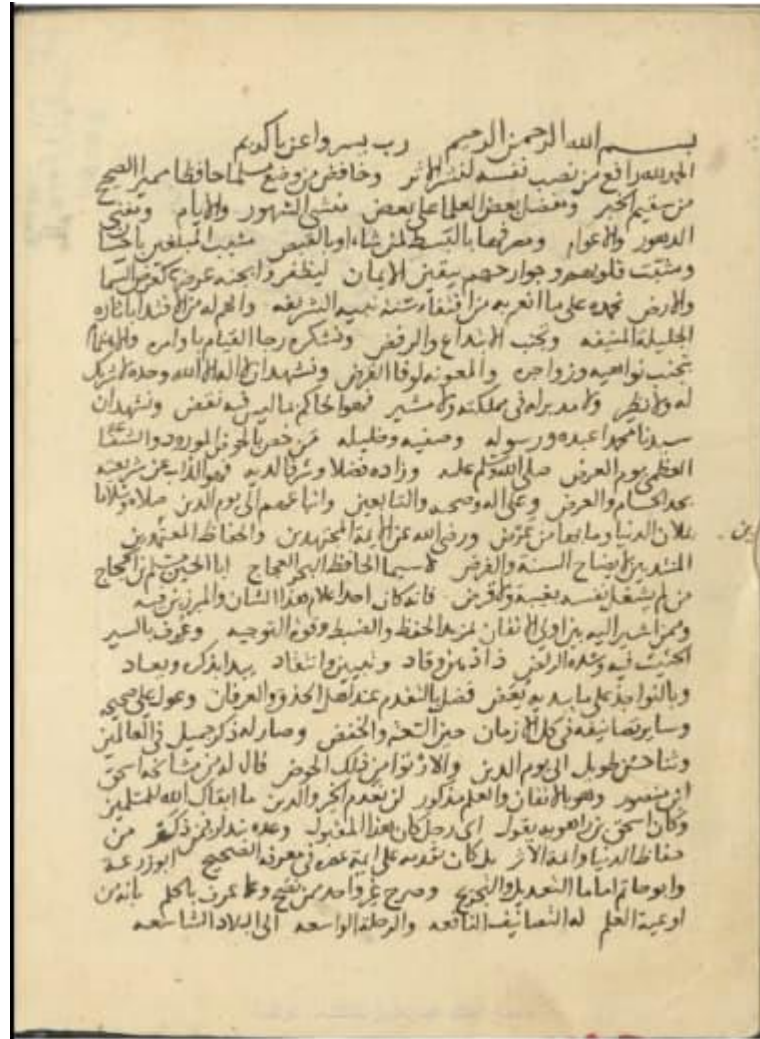 بسم الله الرحمن الرحيم رب يسر واعن يا كريم
الحمد لله رافع من نصب نفسه لنشر الاثر وخافض من وضع مسلما حافظا مميز الصحيح
من سقيم الخبر ومفضل بعض العلما على بعض منشى الشهور والايام ومفنى
الدهور والاعوام ومصرفها بالبسط لمن شاء او بالقبض مثيب المبلغين باحسا
ومثبت قلوبهم وجوارحهم بيقين الايمان ليظفروا بجنه عرضها كعرض السما
والارض نحمده على ما انعم به من اقتفاء سنة نبيه الشريفه والهم له من الاقتدا باثاره
الجليلة المنيفه وتجنب الابتداع والرفض ونشكره رجا القيام باوامره والاهتما
بتجنب نواهيه وزواجره والمعونه لوفا الفرض ونشهد ان لا اله الا الله وحده لا شريك
له ولا نظير ولا مدبر له في مملكته ولا مشير فهو الحاكم بما ليس فيه نقض ونشهد ان
سيدنا محمدا عبده ورسوله وصفيه وخليله من خص بالحوض المورود والشفاعه
العظمى يوم العرض صلى الله وسلم عليه وزاده فضلا وشرفا لديه فهو الذاب عن شريعته
بحد الحسام والعرض وعلى اله وصحبه والتابعين واتباعهم الى يوم الدين صلاه وسلاما
يملان الدنيا وما بها من عرض ورضى الله عن الايمة المجتهدين والحفاظ المعتمدين
المنتدبين لايضاح السنة والفرض لا سيما الحافظ البحر العجاج ابا الحسين مسلم بن الحجاج
من لم يشغل نفسه بغيبة ولا قرض فانه كان احد اعلام هذا الشان والمبرزين فيه
وممن اشير اليه بين اولى الاتقان لمزيد الحفظ والضبط وقوة التوجيه وعرف بالسير
الحثيث فيه وشدة الركض ذا ذهن وقاد وتبيين وانتقاد يبدا بذكره ويعاد
وبالنواجذ على ما يبديه يعض فضل بالتقدم عند اهل الحذق والعرفان وعول على صحيحه
وساير تصانيفه في كل الازمان حين التعنه والخفض وصار له ذكر جميل في العالمين
وثنا حسن طويل الى يوم الدين والارتوا من ذلك الحوض قال له من مشائخه اسحق
ابن منصور وهو بالاتقان والعلم مذكور لن نعدم الخير والدين ما ابقاك الله للمسلمين
وكان اسحق بن راهويه يقول اى رجل كان هذا المقبول وعده بندار فمن ذكر من
حفاظ الدنيا وايمة الاثر بل كان يقدمه على ايمة عصره في معرفة الصحيح ابو زرعة
وابو حاتم اماما التعديل والتجريح وصرح غير واحد ممن نصح وعما عرف بالحلم بانه من
اوعية العلم له التصانيف النافعه والرحلة الواسعه الى البلاد الشاسعه